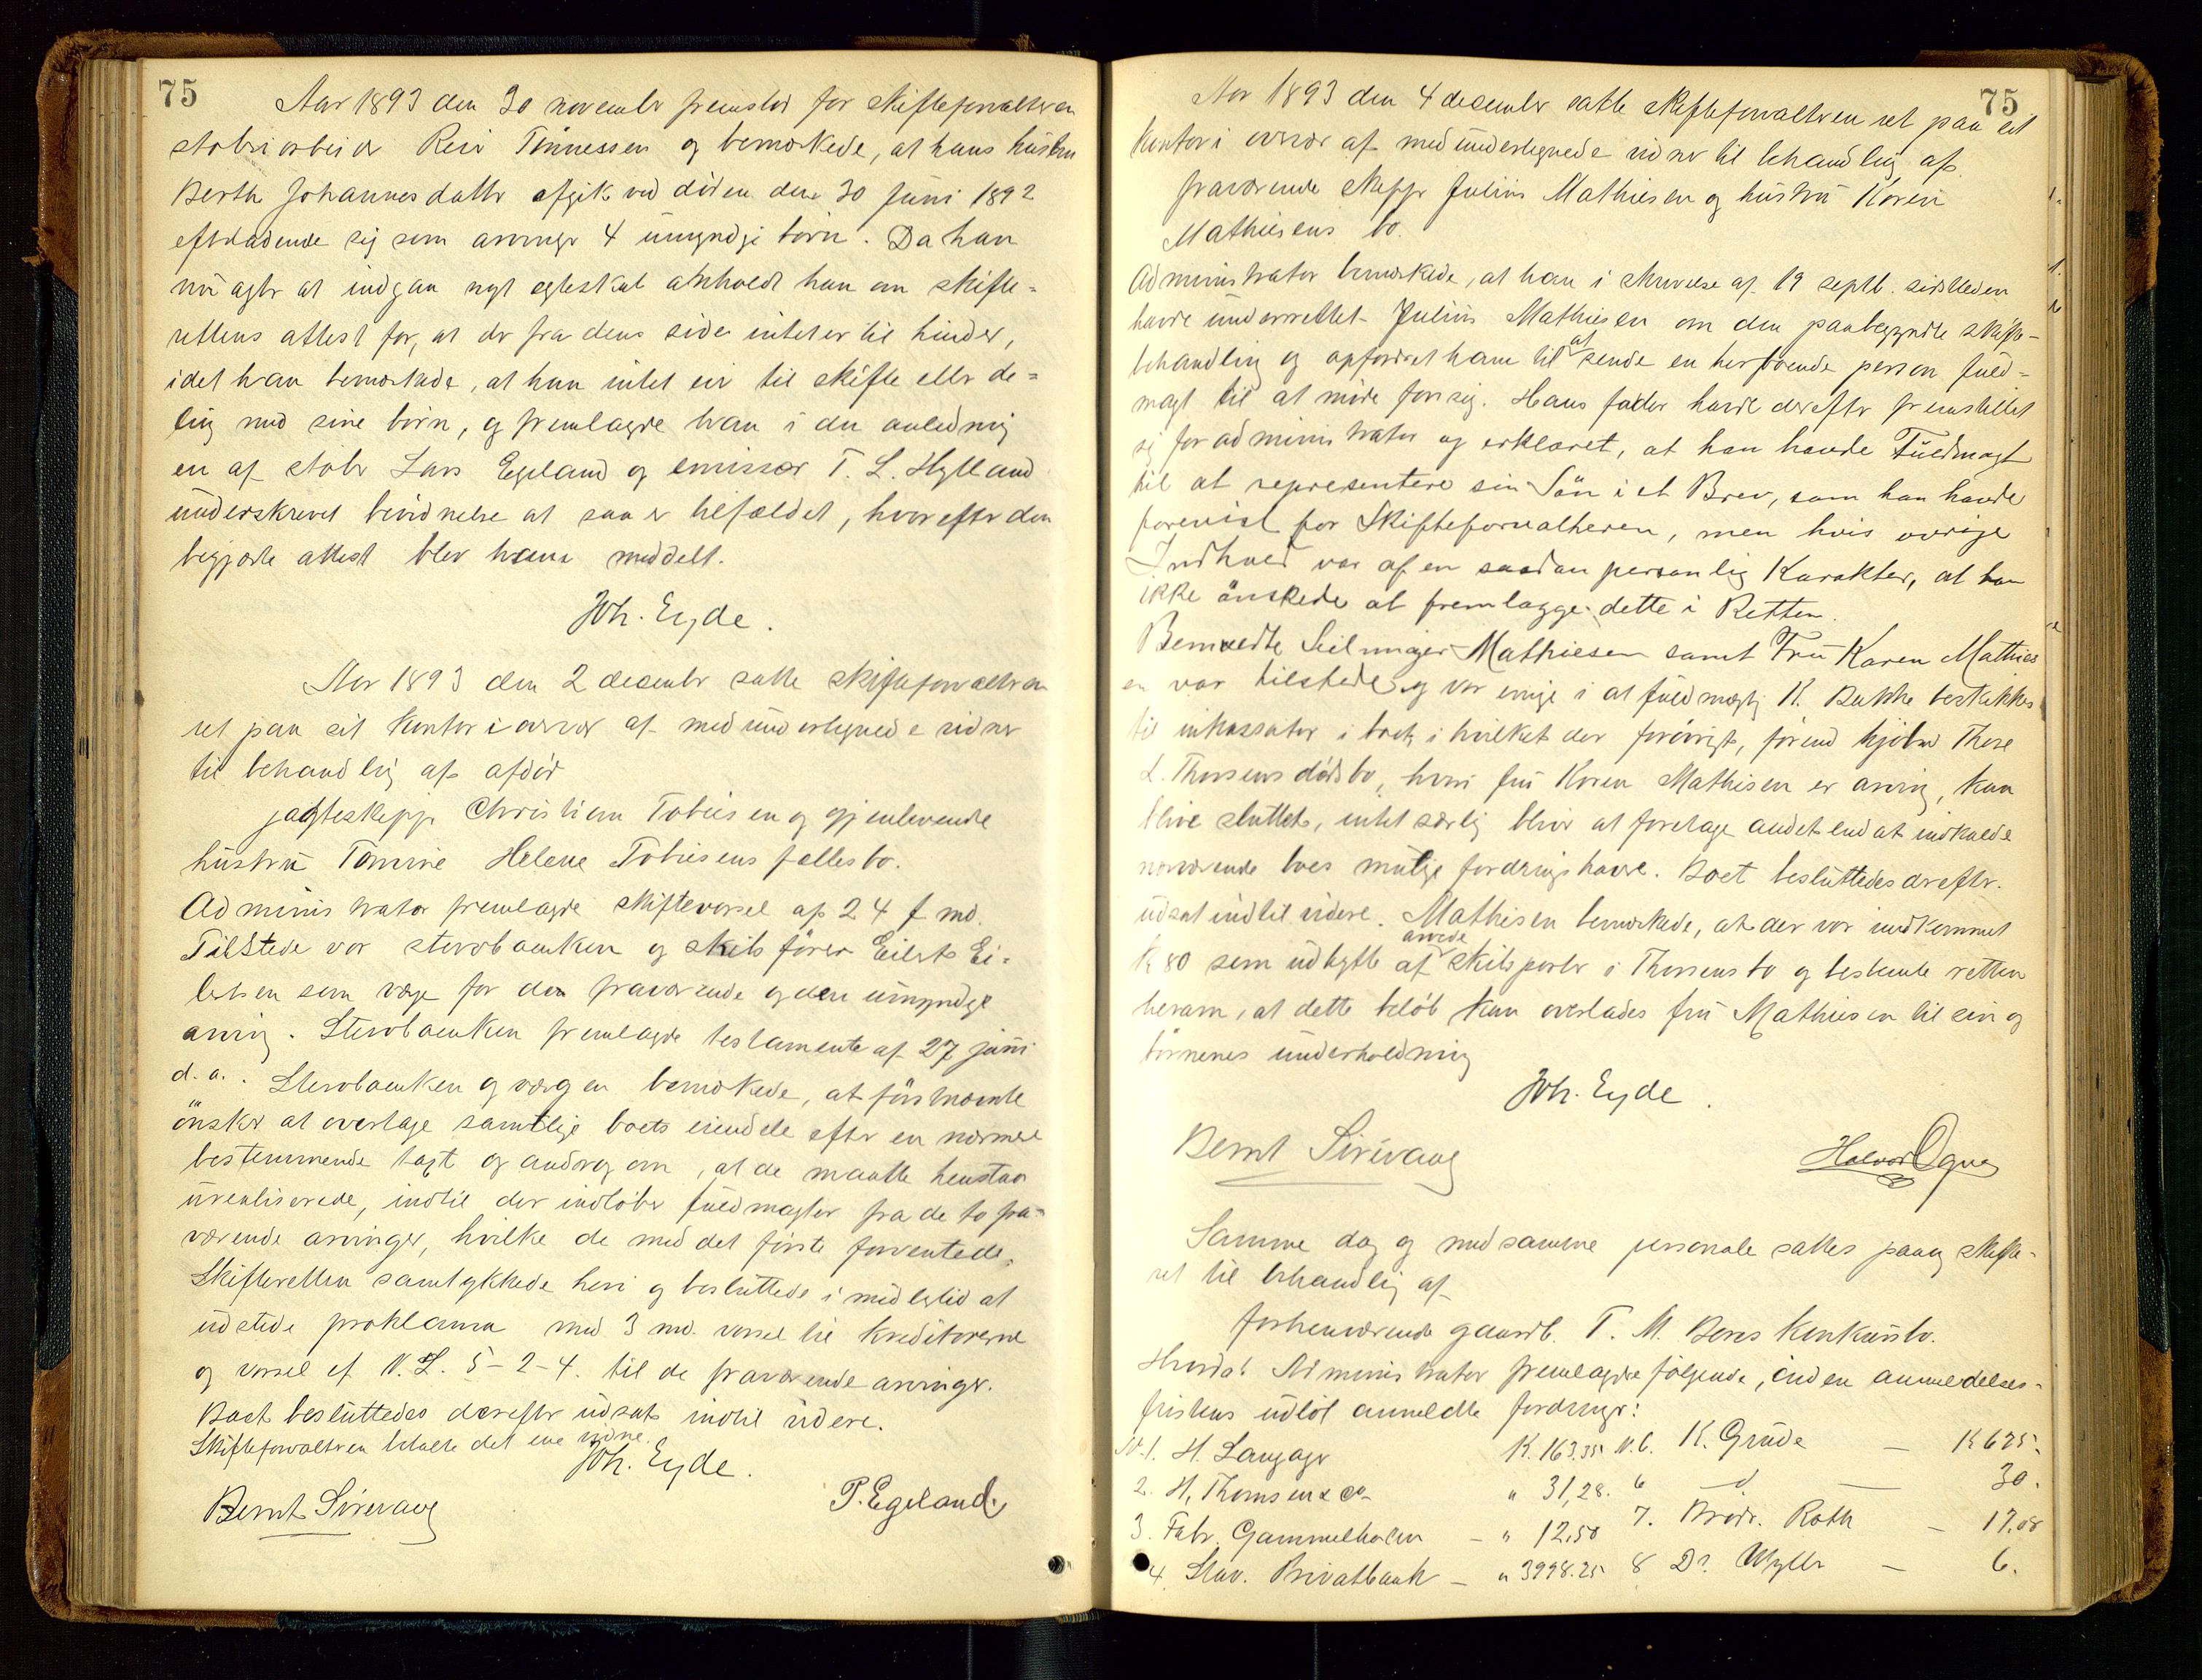 75
Aar 1893 den 30 november fremstod for skifteforvalteren
støberiarbeider Reier Tønnessen og bemerkede, at hans hustru
Berthe Johannesdatter afgik ved døden den 30 juni 1892
efterladende sig som arvinger 4 umyndige børn. Da han
nu agter at indgaa nyt egteskab anholdt han om skifte-
rettens attest for, at der fra dens side intet er til hinder,
idet han bemerkede, at han intet eier til skifte eller de-
ling med sine børn, og fremlagde han i den anledning
en af støber Lars Egeland og emissær T. L. Hylland
underskrevet bevidnelse at saa er tilfældet, hvorefter den
begjærte attest blev ham meddelt.
Joh. Eyde.
Aar 1893 den 2 december satte skifteforvalteren
ret paa sit kontor i overvær af medundertegnede vidner
til behandling af afdød
jagteskipp. Christian Tobiesen og gjenlevende
hustru Tomine Helene Tobiesens fællesbo.
Administrator fremlagde skiftevarsel af 24 f. md.
Tilstede var stervboenken og skibsfører Eilert Ei-
lertsen som verge for den fraværende og den umyndige
arving. Stervboenken fremlagde testamente af 27 juni
d. a. Stervboenken og vergen bemerkede, at førstnævnte
ønsker at overtage samtlige boets eiendele efter en nærmere
bestemmende taxt og androg om, at de maatte henstaa
urealiserede, indtil der indløber fuldmagter fra de to fra-
værende arvinger, hvilke de med det første forventede.
Skifteretten samtykkede heri og besluttede i midlertid at
udstede proklama med 3 md. varsel til kreditorerne
og varsel ef N. L. 5-2-4. til de fraværende arvinger.
Boet besluttedes derefter udsat indtil videre.
Skifteforvalteren betalte det ene vidne.
Joh. Eyde.
Bernt Sirevaag
P. Egeland.
75
Aar 1893 den 4 december satte skifteforvalteren ret paa sit
kontor i overvær af medundertegnede vidner til behandling af
fraværende skipper Julius Mathiesen og hustru Karen
Mathiesens bo.
Administrator bemerkede, at han i skrivelse af 19 septb. sidstleden
havde underrettet Julius Mathiesen om den paabegyndte skifte-
behandling og opfordret ham til at sende en herboende person fuld-
magt til at møde for sig. Hans fader havde derefter fremstillet
sig for administrator og erklæret, at han havde Fuldmagt
til at representere sin Søn i et Brev, som han havde
forevist for Skifteforvalteren, men hvis øvrige
Indhold var af en saadan personlig Karakter, at han
ikke ønskede at fremlægge dette i Retten.
Bemeldte Seilmager Mathiesen samt Fru Karen Mathies
en var tilstede og var enige i at fuldmægtig K. Bakke beskikkes
til inkassator i boet, i hvilket der forøvrigt, førend kjøbm Thore
L. Thorsens dødsbo, hvori fru Karen Mathisen er arving, kan
blive sluttet, intet særlig bliver at foretage andet end at indkalde
nærværende boes mulige fordringshavere. Boet besluttedes derefter
udsat indtil videre. Mathisen bemerkede, at der var indkommet
K 80 som udbytte af arvede skibsparter i Thorsens bo og bestemte retten
herom, at dette beløb kan overlades fru Mathiesen til sin og
børnenes underholdning
Joh. Eyde.
Bernt Sirevaag
Halvor Ogne
Samme dag og med samme personale sattes paany skifte-
ret til behandling af
forhenværende gaardb. T. M. Beres konkursbo.
Hvorda! Administrator fremlagde følgende, inden anmeldelses-
fristens udløb anmeldte fordringer:
N. 1. H. Langager K. 163.35. N. 6. K. Grude — K 675.
2. H. Thomsen & Co. " 31,28. 6 — d — 30.
3. Fabr. Gammelholm — " 12,50 7. Brødr. Roth — 17,08
4. Stav. Privatbank — " 3998.25 8 Dr. Wyller — 6.